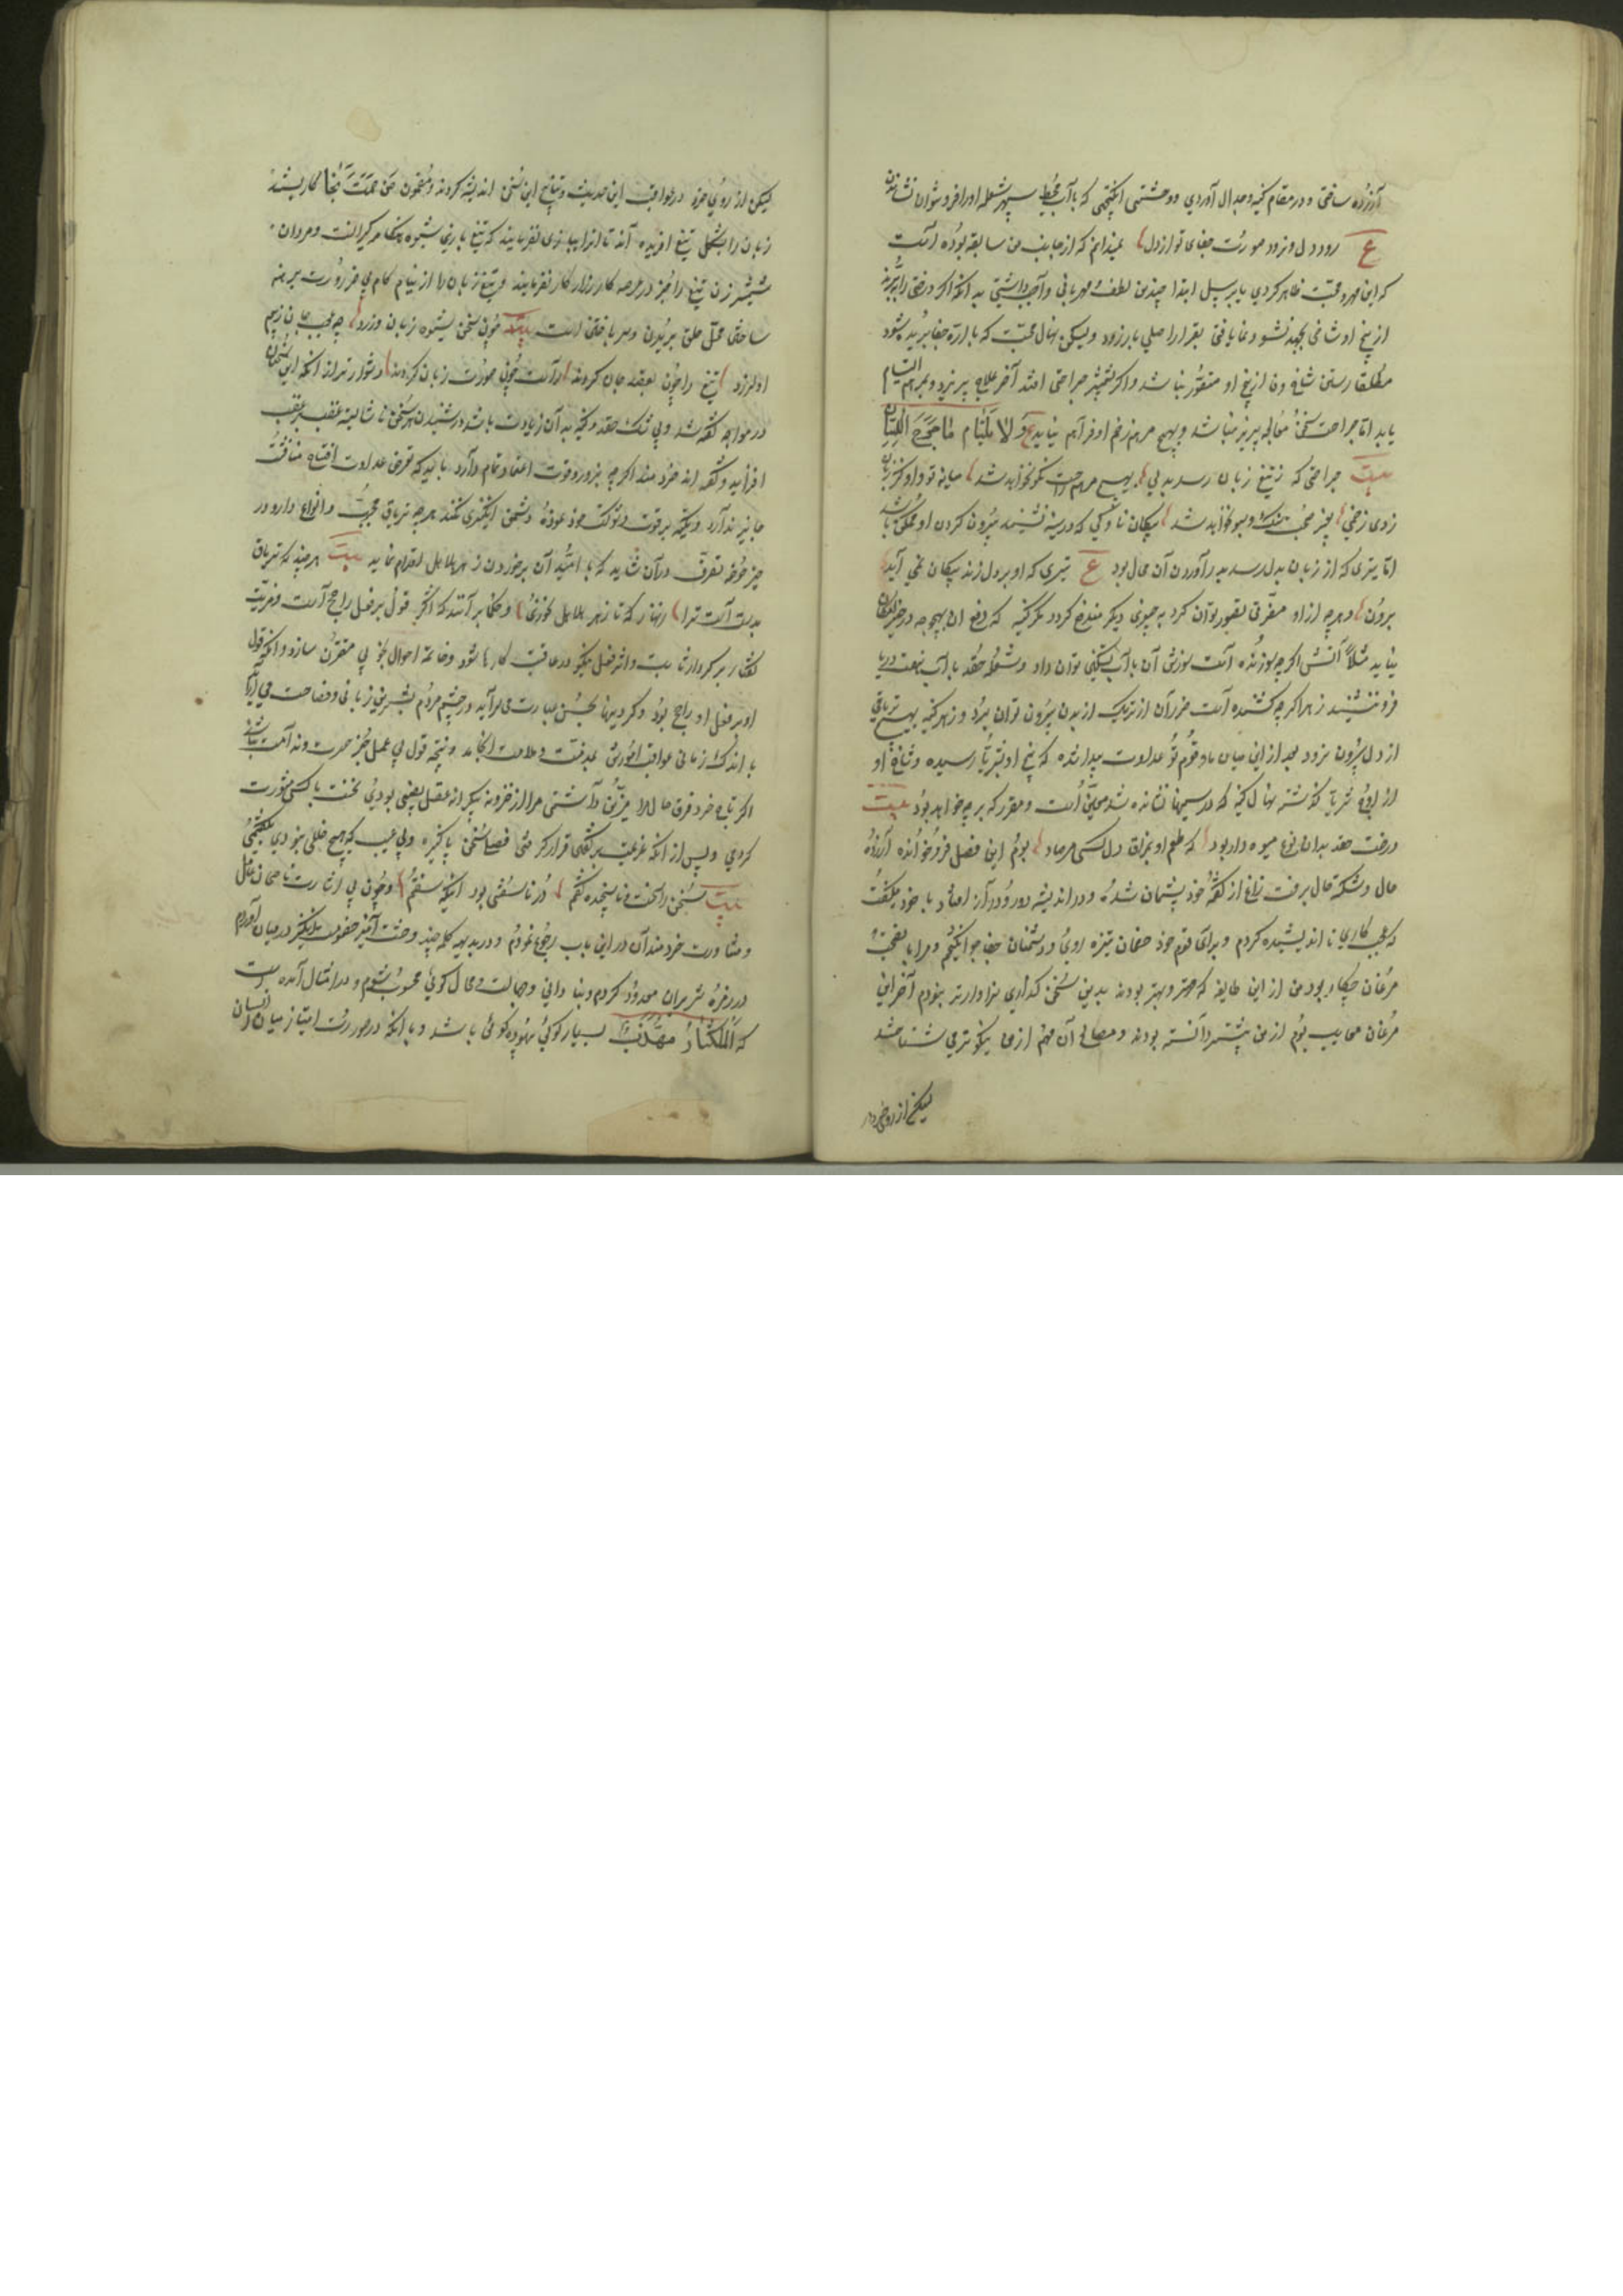 آزرده ساختی و در مقام کینه و جدال آوردی و وحشتی انگیختی که بآب محیط سپهر شعله او را فرو نتوان نشاندن
ع رود دل و نرود صورت جفای تو از دل نمیدانم که از جانب من سابقه بوده است
که این مهر و محبت ظاهر کردی یا بر سبیل ابتدا چندین لطف و مهربانی واجب داشتی بدانکه اگر درختی را ببرند
از بیخ او شاخی بجهد و نشو و نما یافته بقرار اصلی باز رود ولیکن نهال محبت که باره جفا بریده شود
مطلقا رستن شاخ وفا از بیخ او متصور نباشد و اگر بشمشیر جراحتی افتد آخر علاج پذیرد و بمرهم التیام
یابد اما جراحت سخن معالجه پذیر نباشد و بهیچ مرهم زخم او فراهم نیاید ع وَلا یَلتام ما جَرَحَ اللِسان
بیت جراحتی که ز تیغ زبان رسد بدلی بهیچ مرهم راحت نکو نخواهد شد میانه تو و او کز زبان
زدی زخمی بجز محبت و سو نخواهد شد پیکان ناوکی که در سینه نشیند بیرون کردن او ممکن باشد
اما تیری که از زبان بدل رسد برآوردن آن محال بود ع تیری که او بر دل زند پیکان نمی آید
برون و هرچه ازو مضرتی تصور توان کرد بچیزی دیگر مندفع گردد مگر کینه که دفع آن بهیچوجه در حیز امکان
نیاید مثلا آتش اگرچه سوزنده است سوزش آن بآب تسکین توان داد و شعله حقد بآب هفت دریا
فرو ننشیند زهر اگرچه کشنده است ضرر آن از تریاک از بدن بیرون توان برد و زهر کینه بهیچ تریاقی
از دل بیرون نرود بعد ازین میان ما و قوم تو عداوت پیدا شده که بیخ او بثری رسیده و شاخ او
از اوج ثریا گذشته نهال کینه که در سینها نشانده شد معین است و مقرر که بر چه خواهد بود بیت
درخت حقد بدان نوع میوه دار بود که طعم او بمذاق دل کسی مرساد بوم این فصل فرو خوانده آزرده
حال و شکسته بال برفت زاغ از گفته خود پشیمان شده و در اندیشه دور و دراز افتاد با خود میگفت
که عجب کاری نااندیشیده کردم و برای قوم خود خصمان ستیزه روی و دشمنان جفاجو انگیختم و مرا با نصیحت
مرغان چکار بود من ازین طایفه که مهتر و بهتر بودند بدین سخن گذاری سزاوارتر نبودم آخر این
مرغان معایب بوم از من بیشتر دانسته بودند و مصالح آن مهم از من نیکوتر می شناختند
لیکن از روی خرد در
لیکن از روی خرد در عواقب این حدیث و نتایج این سخن اندیشه کردند و مضمون مَن صَمَتَ نَجا کار بستند
زبان را بشکل تیغ آفریده اند تا آنرا ببازی نفرمایند که تیغ بازی شیوه بیکار گر است و مردان
شمشیر زن تیغ را جز در عرصه کارزار کار نفرمایند و تیغ زبان را از نیام کام بی ضرورت برهنه
ساختن محل حلق بریدن و سر باختن است بیت چون سخن بشیوه زبان ورزد چه عجب جان زبیم
او لرزد تیغ را چون بقصد جان کردند راست چون صورت زبان کردند و دشوارتر از آنکه این سخنان
در مواجهه گفته شد و بی شک حقد و کینه بدان زیادت باشد و در شنیدن سخن ناشایسته عقب بر عقب
افزاید و گفته اند خردمند اگرچه بزور و قوت اعتماد تمام دارد باید که تعرض عداوت و افتتاح مناقشت
جایز ندارد و تکیه بر قوت و شوکت خود نموده دشمن انگیزی نکند هر که تریاق مجرب و انواع دارو در
حیز حوزه تصرف در آن شاید که به امید آن بر خوردن زهر هلاهل اقدام نماید بیت هرچند که تریاق
بدست است ترا زنهار که تا زهر هلاهل نخوری و حکما بر آنند که اثر قول بر فعل راجح است و مزیت
گفتار بر کردار ثابت و اثر فعل نیکو در عاقبت کارها شود و خاتمت احوال بخوبی مقرون سازد و آنکه قول
او بر فعل او راجح بود و کردنیها بحسن عبارت می آراید و در چشم مردم بشیرین زبانی و فصاحت می آراید
باندک زمانی عواقب امورش بمذلت و ملامت انجامد و نتیجه قول بی عمل جز حسرت و ندامت نباشد
اگر تاج خرد فرق حال مرا مزین داشتی مرا از خزینه بیکرانه عقل نصیبی بودی نخست با کسی مشورت
کردی و پس از آنکه عزیمت بر گفتن قرار گرفتی فصلی سخن پاکیزه و بی عیب که هیچ خللی نبودی بگفتمی
بیت سخن را سخت و ناسنجیده گفتم دُر ناسفتنی بود اینکه سفتم و چون بی اشارت ناصحان عاقل
و مشاورت خردمندان درین باب رجوع نمودم و در بدیهه کلمه چند وحشت آمیز خصومت انگیز در میان آوردم
در زمره شریران معدود کردم و بنادانی و جهالت و محال گوئی محسوب شوم و در امثال آمده است
که المکثار مهذار بسیارگوئی بیهوده گوی باشد و با آنکه در صورت امتیاز میان انسان